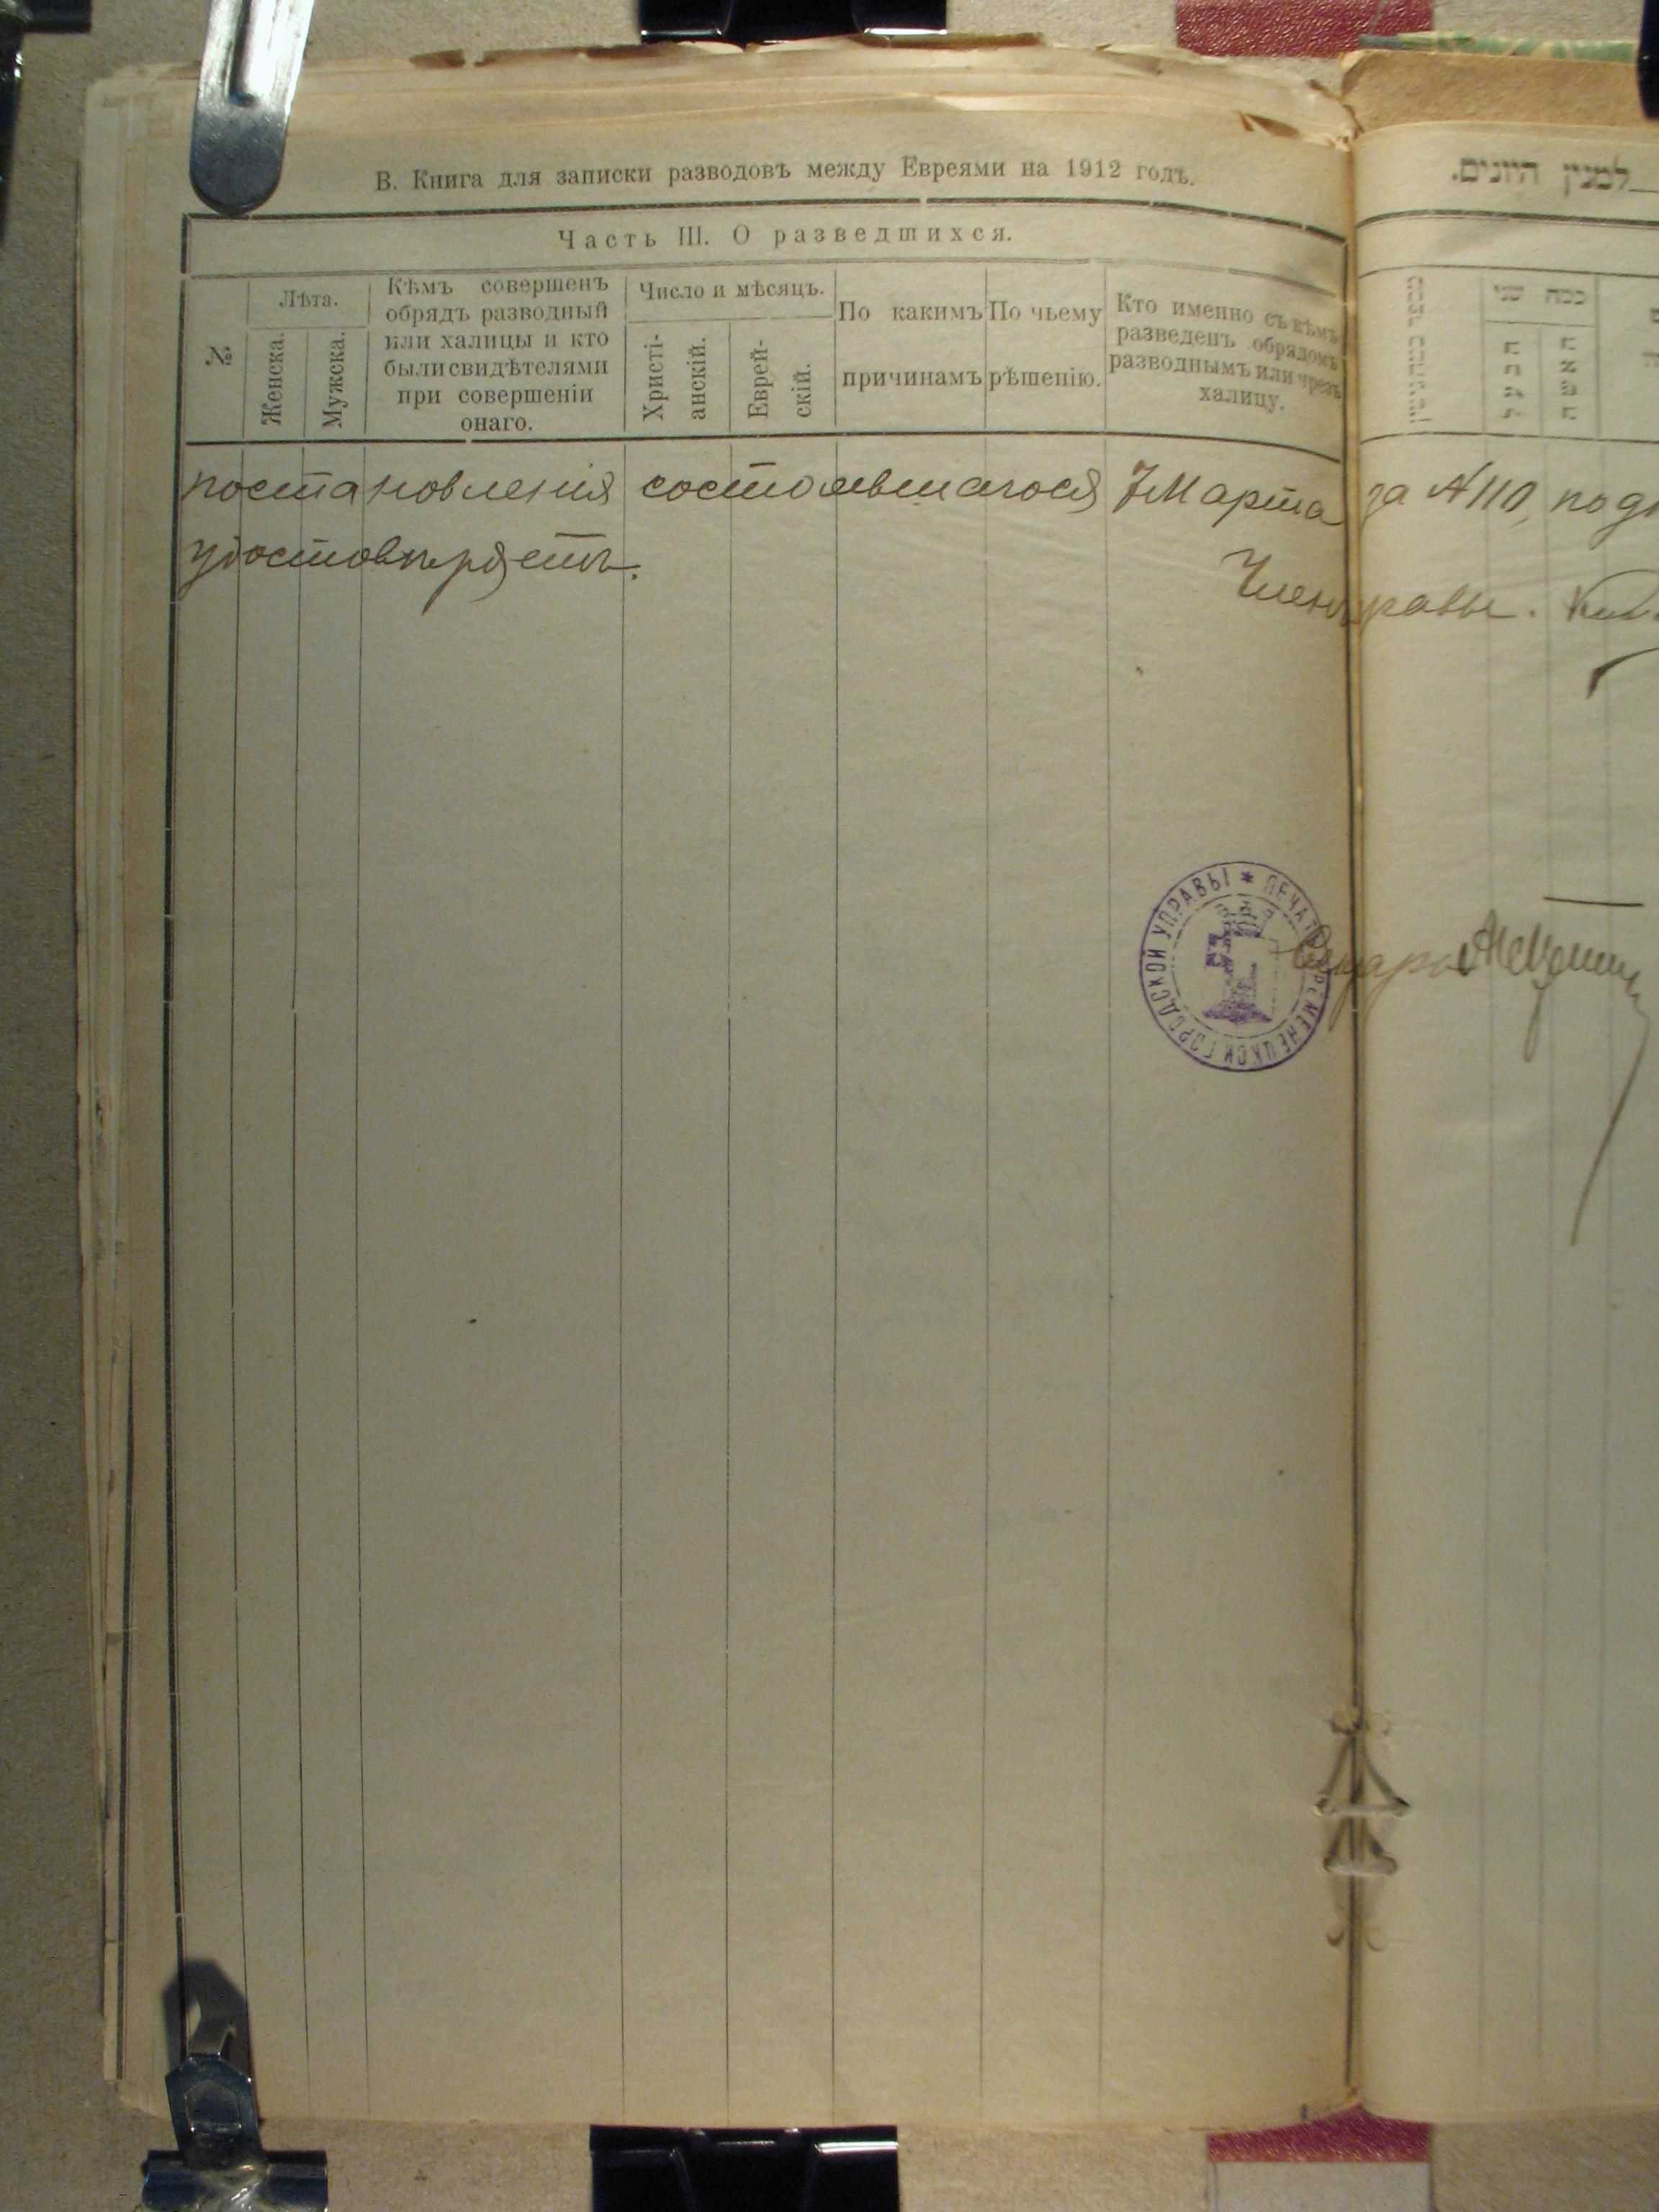 В. Книга для записки разводовъ между Евреями на 1912 годъ.
למנין היונים.
Часть III. О разведшихся.
№
Лѣта.
Женска.
Мужска.
Кѣмъ совершенъ
обрядъ разводный
или халицы и кто
были свидѣтелями
при совершеніи
онаго.
Число и мѣсяцъ.
Христі-
анскій.
Еврей-
скій.
По какимъ
причинамъ
По чьему
рѣшенію.
Кто именно съ кѣмъ
разведенъ обрядомъ
разводнымъ или чрезъ
халицу.
כמה שני
הבעל
האשה
постановленія состоявшагося 7 Марта за №110, подп
удостовѣряетъ.
Членъ управы.
ПЕЧАТЬ КРЕМЕНЕЦКОЙ ГОРОДСКОЙ УПРАВЫ *